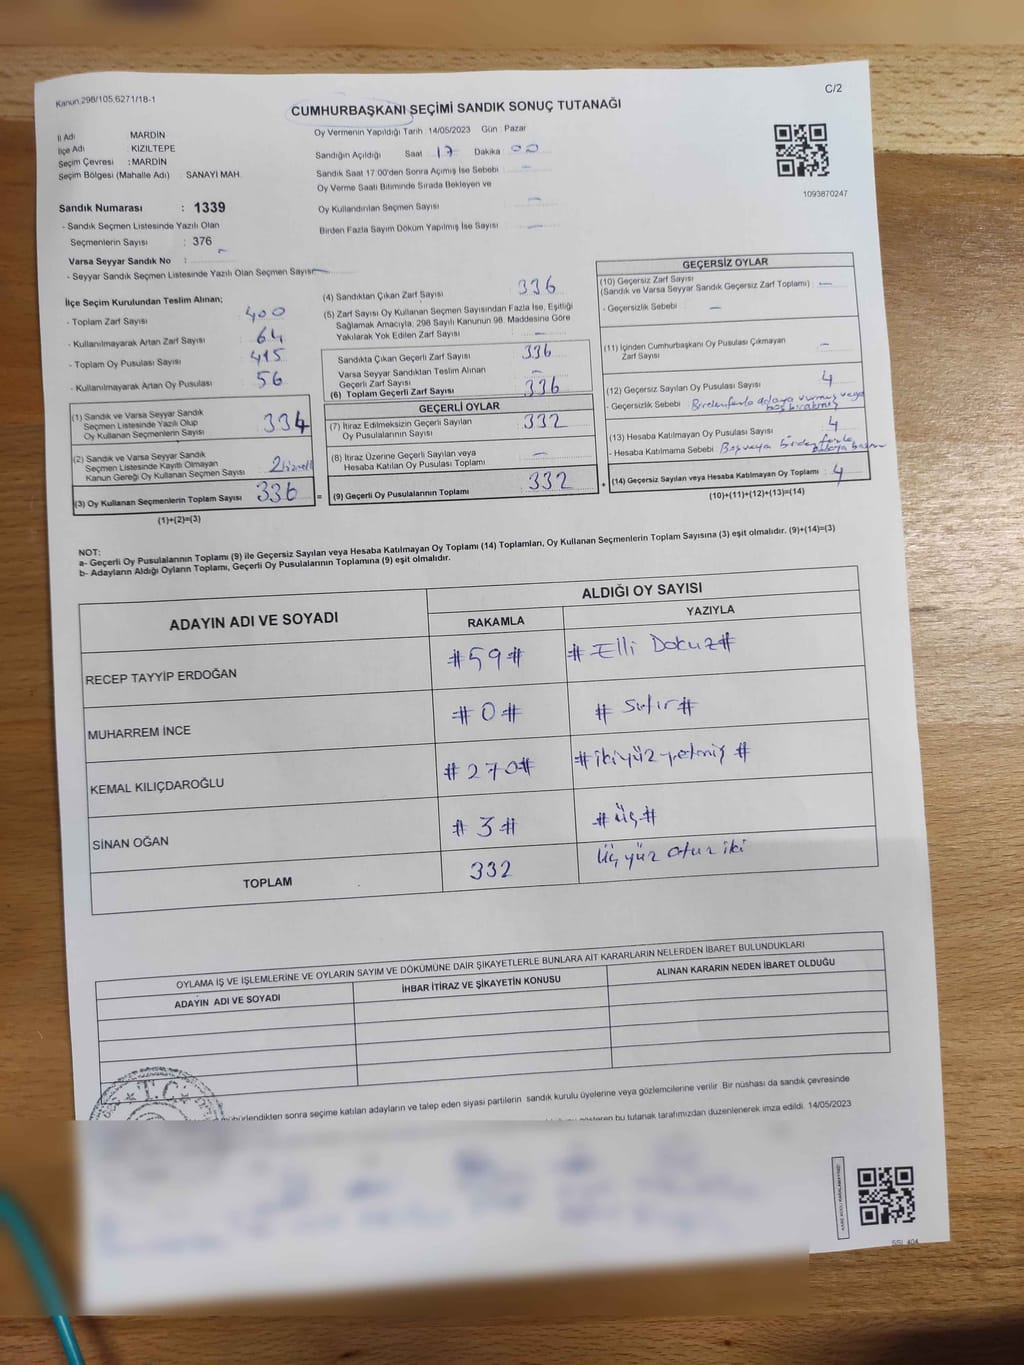 Kanun.298/105,6271/18-1
C/2
CUMHURBAŞKANI SEÇİMİ SANDIK SONUÇ TUTANAĞI
İl Adı MARDİN
İlçe Adı KIZILTEPE
Seçim Çevresi : MARDİN
Seçim Bölgesi (Mahalle Adı) SANAYİ MAH.
Sandık Numarası : 1339
- Sandık Seçmen Listesinde Yazılı Olan
Seçmenlerin Sayısı : 376
Varsa Seyyar Sandık No : -
- Seyyar Sandık Seçmen Listesinde Yazılı Olan Seçmen Sayısı -
Oy Vermenin Yapıldığı Tarih 14/05/2023 Gün : Pazar
Sandığın Açıldığı Saat 17 Dakika 00
Sandık Saat 17.00'den Sonra Açılmış İse Sebebi -
Oy Verme Saati Bitiminde Sırada Bekleyen ve
Oy Kullandırılan Seçmen Sayısı -
Birden Fazla Sayım Döküm Yapılmış İse Sayısı -
1093870247
İlçe Seçim Kurulundan Teslim Alınan;
- Toplam Zarf Sayısı 400
- Kullanılmayarak Artan Zarf Sayısı 64
- Toplam Oy Pusulası Sayısı 415
- Kullanılmayarak Artan Oy Pusulası 56
(1) Sandık ve Varsa Seyyar Sandık
Seçmen Listesinde Yazılı Olup
Oy Kullanan Seçmenlerin Sayısı 334
(2) Sandık ve Varsa Seyyar Sandık
Seçmen Listesinde Kayıtlı Olmayan
Kanun Gereği Oy Kullanan Seçmen Sayısı 2
(3) Oy Kullanan Seçmenlerin Toplam Sayısı 336 =
(1)+(2)=(3)
(4) Sandıktan Çıkan Zarf Sayısı 336
(5) Zarf Sayısı Oy Kullanan Seçmen Sayısından Fazla İse, Eşitliği
Sağlamak Amacıyla, 298 Sayılı Kanunun 98. Maddesine Göre
Yakılarak Yok Edilen Zarf Sayısı -
Sandıkta Çıkan Geçerli Zarf Sayısı 336
Varsa Seyyar Sandıktan Teslim Alınan
Geçerli Zarf Sayısı -
(6) Toplam Geçerli Zarf Sayısı 336
GEÇERLİ OYLAR
(7) İtiraz Edilmeksizin Geçerli Sayılan
Oy Pusulalarının Sayısı 332
(8) İtiraz Üzerine Geçerli Sayılan veya
Hesaba Katılan Oy Pusulası Toplamı -
(9) Geçerli Oy Pusulalarının Toplamı 332 +
GEÇERSİZ OYLAR
(10) Geçersiz Zarf Sayısı
(Sandık ve Varsa Seyyar Sandık Geçersiz Zarf Toplamı) : -
- Geçersizlik Sebebi : -
(11) İçinden Cumhurbaşkanı Oy Pusulası Çıkmayan
Zarf Sayısı -
(12) Geçersiz Sayılan Oy Pusulası Sayısı : 4
- Geçersizlik Sebebi : Birden fazla adaya vurmuş veya
boş bırakmış
(13) Hesaba Katılmayan Oy Pusulası Sayısı : 4
- Hesaba Katılmama Sebebi : Boş veya birden fazla
(14) Geçersiz Sayılan veya Hesaba Katılmayan Oy Toplamı : 4
(10)+(11)+(12)+(13)=(14)
NOT:
a- Geçerli Oy Pusulalarının Toplamı (9) ile Geçersiz Sayılan veya Hesaba Katılmayan Oy Toplamı (14) Toplamları, Oy Kullanan Seçmenlerin Toplam Sayısına (3) eşit olmalıdır. (9)+(14)=(3)
b- Adayların Aldığı Oyların Toplamı, Geçerli Oy Pusulalarının Toplamına (9) eşit olmalıdır.
ADAYIN ADI VE SOYADI
ALDIĞI OY SAYISI
RAKAMLA YAZIYLA
RECEP TAYYİP ERDOĞAN #59# # Elli Dokuz#
MUHARREM İNCE #0# # Sıfır#
KEMAL KILIÇDAROĞLU #270# #ikiyüz yetmiş #
SİNAN OĞAN #3# #üç#
TOPLAM 332 Üç yüz otuz iki
OYLAMA İŞ VE İŞLEMLERİNE VE OYLARIN SAYIM VE DÖKÜMÜNE DAİR ŞİKAYETLERLE BUNLARA AİT KARARLARIN NELERDEN İBARET BULUNDUKLARI
ADAYIN ADI VE SOYADI İHBAR İTİRAZ VE ŞİKAYETİN KONUSU ALINAN KARARIN NEDEN İBARET OLDUĞU
T.C.
mühürlendikten sonra seçime katılan adayların ve talep eden siyasi partilerin sandık kurulu üyelerine veya gözlemcilerine verilir. Bir nüshası da sandık çevresinde
gösteren bu tutanak tarafımızdan düzenlenerek imza edildi. 14/05/2023